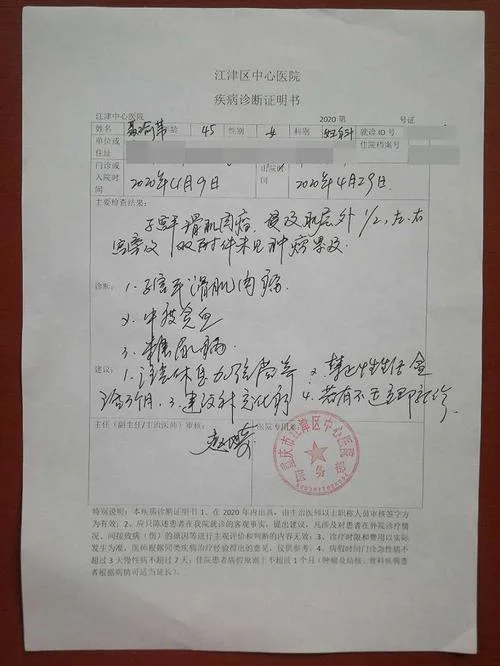 江津区中心医院
疾病诊断证明书
江津中心医院 2020 第 号证
姓名 年龄 45 性别 女 科别 妇科 就诊ID号
单位或住址 住院档案号
门诊或入院时间 2020年4月9日 出院时间 2020年4月29日
主要检查结果:
子宫平滑肌肉瘤,浸及肌层外1/2,左、右
宫旁及双附件未见肿瘤累及。
诊断: 1.子宫平滑肌肉瘤
2.中度贫血
3.糖尿病
建议: 1.注意休息加强营养 2.禁止性生活盆
浴3个月. 3.建议补充化疗 4.若有不适立即就诊.
主任(副主任/主治医师)审核: 医院专用章
重庆市江津区中心医院
医务部
特别说明:本疾病诊断证明书 1、在 2020 年内出具,由主治医师以上职称人员审核签字方
为有效;2、应只陈述患者在我院就诊的客观事实,提出建议,凡涉及对患者在外院诊疗情
况、间接致病(伤)的原因等进行主观评价和判断的内容无效;3、诊疗时限和费用以实际
发生为准,医师根据同类疾病治疗经验得出的意见,仅供参考。4、病假时间门诊急性病不
超过 3 天慢性病不超过 7 天;住院患者病假原则上不超过 1 个月(肿瘤及结核、骨科疾病患
者根据病情可适当延长)。